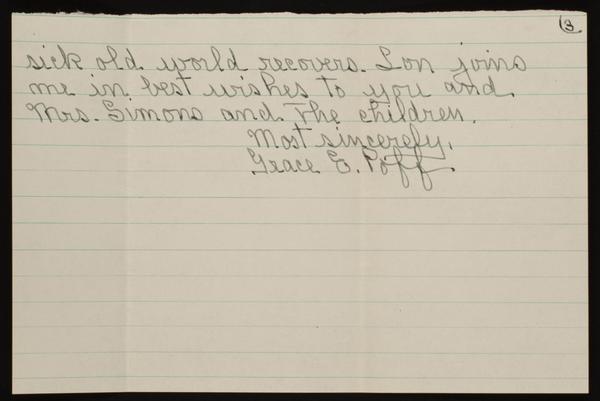 3
sick old world recovers. Lon joins
me in best wishes to you and.
Mrs. Simons and The children.
Most sincerely,
Grace E. Poff.